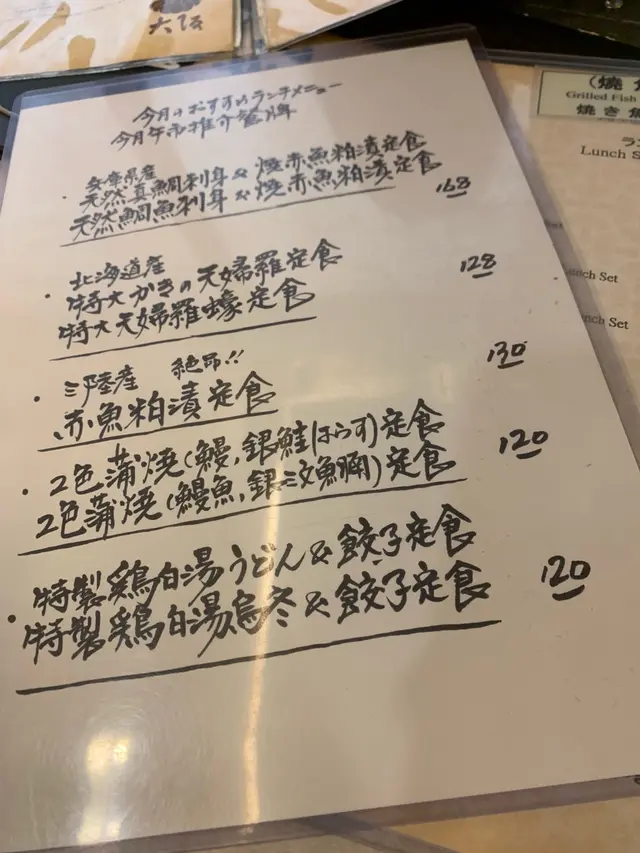 大阪
今月のおすすめランチメニュー
今月午市推介餐牌
・天然真鯛刺身 & 焼赤魚粕漬定食
天然鯛魚刺身 & 焼赤魚粕漬定食
168
北海道産
・特大かきの天婦羅定食
特大天婦羅蠔定食
128
・三陸産 絶品!!
赤魚粕漬定食
130
・2色蒲焼(鰻,銀鮭はらす)定食
2色蒲焼(鰻魚,銀三文魚腩)定食
120
・特製鶏白湯うどん&餃子定食
特製鶏白湯烏冬&餃子定食
120
Grilled Fish
焼き魚
Lunch S
Lunch Set
Lunch Set